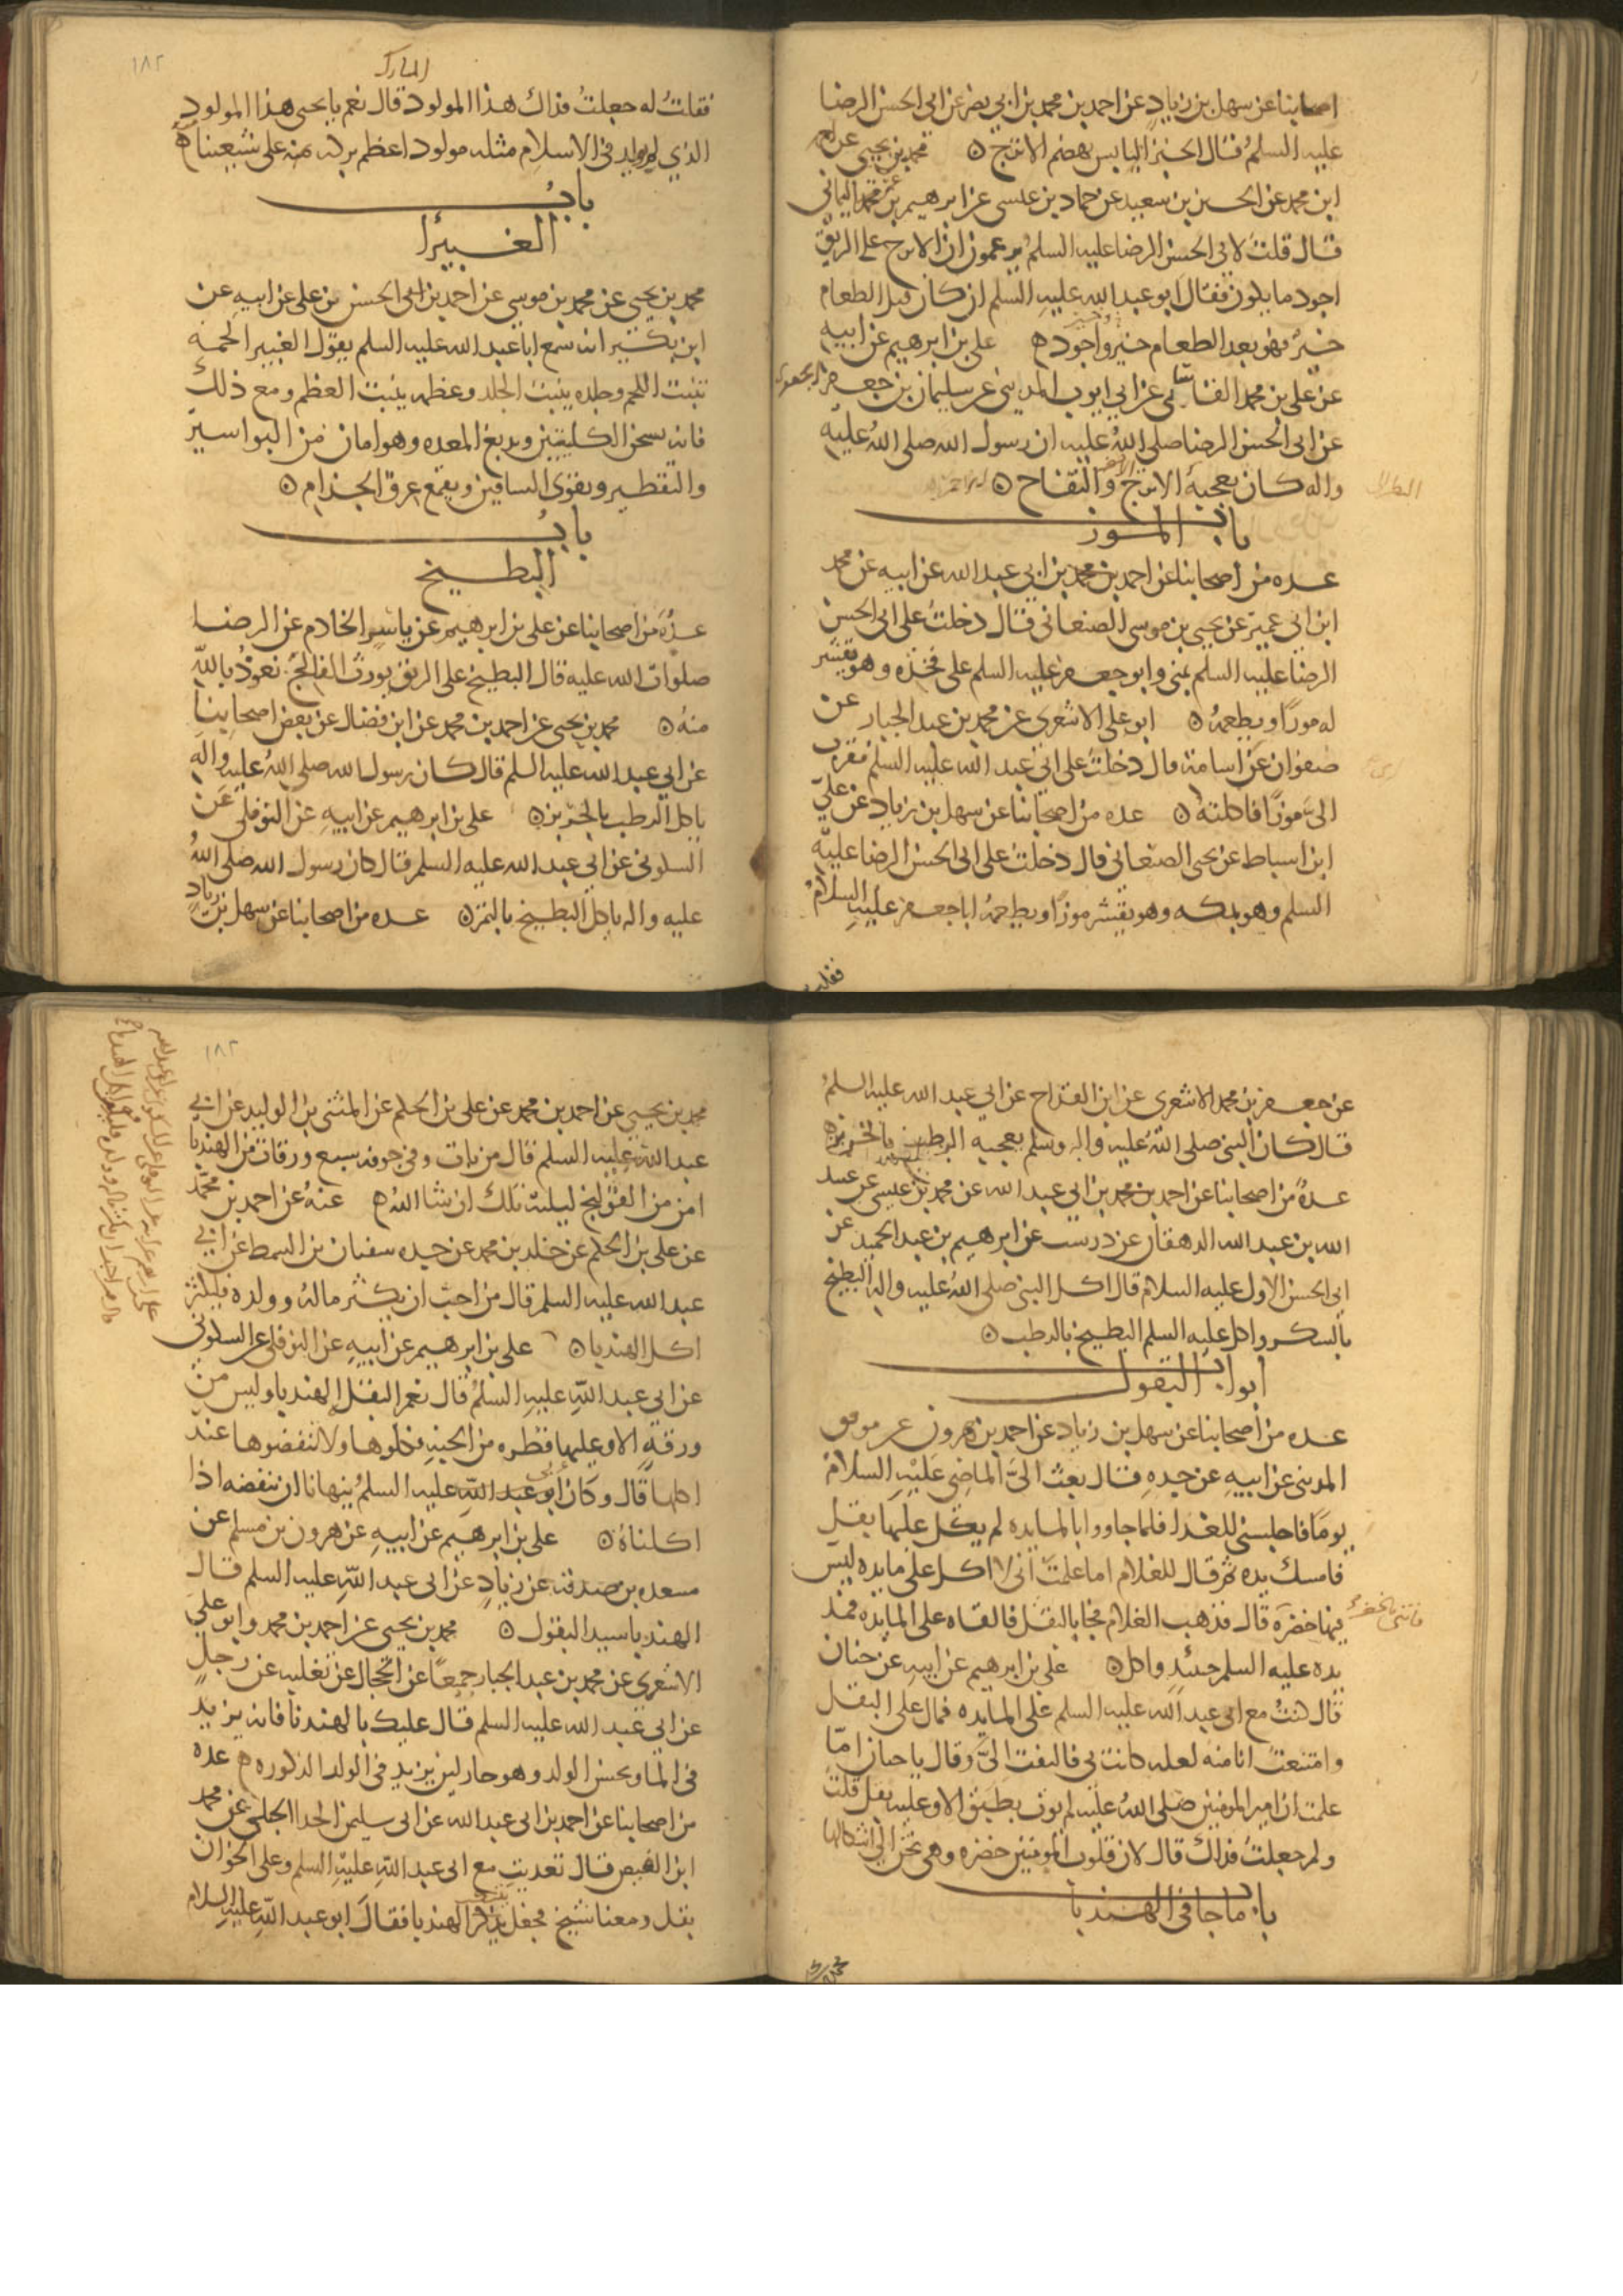 اصحابنا عن سهل بن زياد عن احمد بن محمد بن ابي نصر عن ابي الحسن الرضا
عليه السلم قال الخبز اليابس يهضم الاترج ه محمد بن يحيى عن احمد
ابن محمد عن الحسين بن سعيد عن حماد بن عيسى عن ابرهيم بن عمر اليماني
قال قلت لابي الحسن الرضا عليه السلم يزعمون ان الاترج على الريق
اجود ما يكون فقال ابو عبد الله عليه السلم ان كان قبل الطعام
خير فهو بعد الطعام خير واجود ه علي بن ابرهيم عن ابيه
عن علي بن محمد القاساني عن ابي ايوب المديني عن سليمان بن جعفر الجعفري
عن ابي الحسن الرضا صلى الله عليه ان رسول الله صلى الله عليه
واله كان يعجبه الاترج والتفاح ه
باب الموز
عده من اصحابنا عن احمد بن محمد بن ابي عبد الله عن ابيه عن محمد
ابن ابي عمير عن يحيى بن موسى الصنعاني قال دخلت على ابي الحسن
الرضا عليه السلم بمنى وابو جعفر عليه السلم على فخذه وهو يقشر
له موزا ويطعمه ه ابو علي الاشعري عن محمد بن عبد الجبار عن
صفوان عن اسامة قال دخلت على ابي عبد الله عليه السلم فقرب
الي موزا فاكلته ه عده من اصحابنا عن سهل بن زياد عن علي
ابن اسباط عن يحيى الصنعاني قال دخلت على ابي الحسن الرضا عليه
السلم وهو بمكه وهو يقشر موزا ويطعمه ابا جعفر عليه السلام
فقلت
١٨٢
المبارك
فقلت له جعلت فداك هذا المولود قال نعم يا يحيى هذا المولود
الذي لم يولد في الاسلام مثله مولود اعظم بركه منه على شيعتنا ه
باب
الغبيرا
محمد بن يحيى عن محمد بن موسى عن احمد بن الحسن بن علي عن ابيه عن
ابن بكير انه سمع ابا عبد الله عليه السلم يقول الغبيرا لحمه
تنبت اللحم وجلده ينبت الجلد وعظمه ينبت العظم ومع ذلك
فانه يسخن الكليتين ويدبغ المعده وهو امان من البواسير
والتقطير ويقوى الساقين ويقمع عرق الجذام ه
باب
البطيخ
عدة من اصحابنا عن علي بن ابرهيم عن ياسر الخادم عن الرضا
صلوات الله عليه قال البطيخ على الريق يورث الفالج نعوذ بالله
منه ه محمد بن يحيى عن احمد بن محمد عن ابن فضال عن بعض اصحابنا
عن ابي عبد الله عليه السلم قال كان رسول الله صلى الله عليه واله
ياكل الرطب بالخربز ه علي بن ابرهيم عن ابيه عن النوفلي عن
السكوني عن ابي عبد الله عليه السلم قال كان رسول الله صلى الله
عليه واله ياكل البطيخ بالتمر ه عده من اصحابنا عن سهل بن زياد
عن جعفر بن محمد الاشعري عن ابن القداح عن ابي عبد الله عليه السلم
قال كان النبي صلى الله عليه واله وسلم يعجبه الرطب بالخربز ه
عدة من اصحابنا عن احمد بن محمد بن ابي عبد الله عن محمد بن عيسى عن عبيد
الله بن عبد الله الدهقان عن درست عن ابرهيم بن عبد الحميد عن
ابي الحسن الاول عليه السلام قال اكل النبي صلى الله عليه واله البطيخ
بالسكر واكل عليه السلم البطيخ بالرطب ه
ابواب البقول
عده من اصحابنا عن سهل بن زياد عن احمد بن هرون عن موفق
المديني عن ابيه عن جده قال بعث الي الماضي عليه السلام
يوما فاجلسني للغدا فلما جاووا بالمايده لم يكن عليها بقل
فامسك يده ثم قال للغلام اما علمت اني لا اكل على مايده ليس
فيها خضره قال فذهب الغلام فجا بالبقل فالقاه على المايده فمد
يده عليه السلم حينئذ واكل ه علي بن ابرهيم عن ابيه عن حنان
قال كنت مع ابي عبد الله عليه السلم على المايده فمال على البقل
وامتنعت انا منه لعله كانت بي فالتفت الي وقال يا حنان اما
علمت ان امير المومنين صلى الله عليه لم يوت بطبق الا وعليه بقل قلت
ولم جعلت فداك قال لان قلوب المومنين خضره وهي تحن الى اشكالها
باب ما جا في الهندبا
محمد
١٨٣
محمد بن يحيى عن احمد بن محمد عن علي بن الحكم عن المثنى بن الوليد عن ابي
عبد الله عليه السلم قال من بات وفي جوفه سبع ورقات من الهندبا
امن من القولنج ليلته تلك ان شا الله ه عنه عن احمد بن محمد
عن علي بن الحكم عن خلد بن محمد عن جده سفيان بن السمط عن ابي
عبد الله عليه السلم قال من احب ان يكثر ماله وولده فليكثر
اكل الهندبا ه علي بن ابرهيم عن ابيه عن النوفلي عن السكوني
عن ابي عبد الله عليه السلم قال نعم البقل الهندبا وليس من
ورقة الا وعليها قطره من الجنه فكلوها ولا تنفضوها عند
اكلها قال وكان ابي عليه السلم ينهانا ان ننفضه اذا
اكلناه ه علي بن ابرهيم عن ابيه عن هرون بن مسلم عن
مسعده بن صدقه عن زياد عن ابي عبد الله عليه السلم قال
الهندبا سيد البقول ه محمد بن يحيى عن احمد بن محمد وابو علي
الاشعري عن محمد بن عبد الجبار جميعا عن الحجال عن ثعلبه عن رجل
عن ابي عبد الله عليه السلم قال عليك بالهندبا فانه يزيد
في الما ويحسن الولد وهو حار لين يزيد في الولد الذكوره ه عده
من اصحابنا عن احمد بن ابي عبد الله عن ابي سليمن الحذا الجلي عن محمد
ابن الفيض قال تغديت مع ابي عبد الله عليه السلم وعلى الخوان
بقل ومعنا شيخ فجعل يذكر الهندبا فقال ابو عبد الله عليه السلام